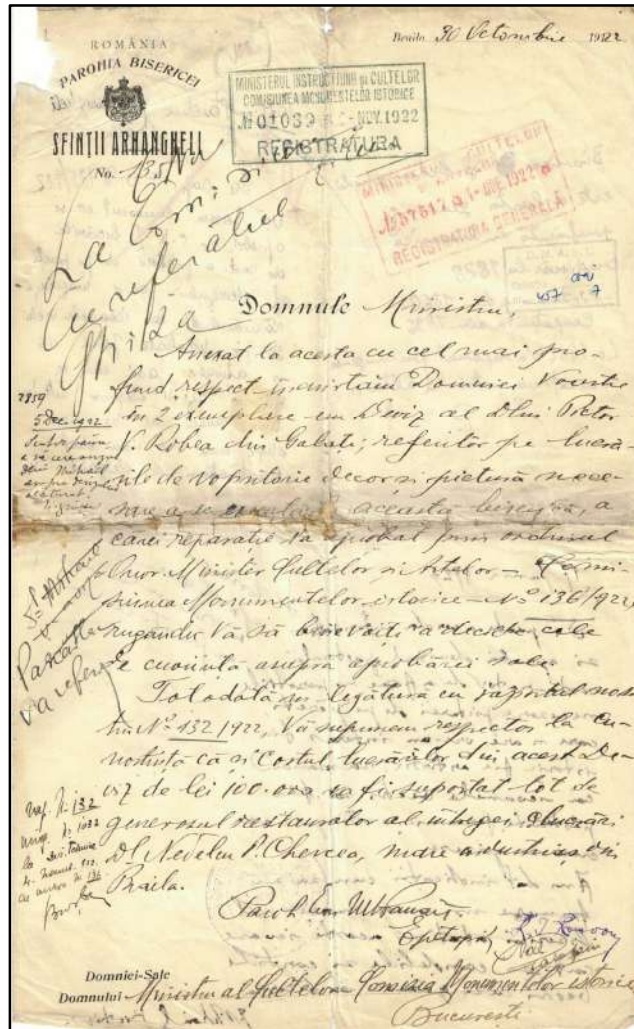 ROMÂNIA
PAROHIA BISERICEI
SFINȚII ARHANGHELI
No. 135
Braila, 30 Octombrie 1922
MINISTERUL INSTRUCTIUNII SI CULTELOR
COMISIUNEA MONUMENTELOR ISTORICE
No 01039 NOV. 1922
REGISTRATURA
1922
REGISTRATURA GENERALĂ
La Comisiune
cu referatul
Domnule Ministru,
Anexat la acesta cu cel mai pro-
fund respect înaintăm Domniei Voastre
în 2 exemplare un Deviz al Dlui Pictor
V. Robea din Galați; referitor pe lucră-
rile de vopsitorie decor și pictură nece-
sare a se executa la aceasta biserică, a
carei reparație s'a aprobat prin ordinul
Onor. Minister Cultelor și Artelor – Comi-
siunea Monumentelor istorice – No 136/922,
rugându Vă să binevoiți a decide cele
de cuviință asupra aprobărei sale.
Totodată în legătură cu raportul nos-
tru No 132/922, Vă supunem respectos la cu-
noștință că și Costul lucrărilor din acest De-
viz de lei 100.000 va fi suportat tot de
generosul restaurator al întregei lucrări
Dl. Nedelcu P. Chercea, mare industriaș din
Braila.
2859
5 Dec. 1922
va refera
Paroh
Epitropi
Domniei-Sale
Domnului Ministru al Cultelor Comisia Monumentelor istorice
București